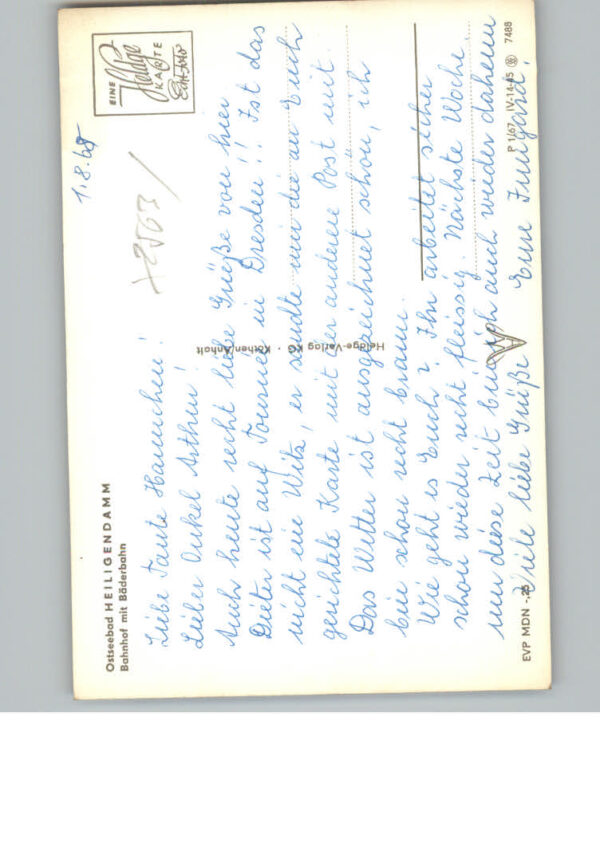 Ostseebad HEILIGENDAMM
Bahnhof mit Bäderbahn
EINE
Heldge
KARTE
Echt Foto
1.8.68
Liebe Tante Hannchen!
Lieber Onkel Arthur!
Auch heute recht liebe Grüße von hier
Dieter ist auf Tournee in Dresden!! Ist das
nicht ein Witz, er sandte mir die an Euch
gerichtete Karte mit der anderen Post mit.
Das Wetter ist ausgezeichnet schön, ich
bin schon recht braun.
Wie geht es Euch? Ihr arbeitet sicher
schon wieder recht fleissig. Nächste Woche
um diese Zeit bin ich auch wieder daheim
Viele liebe Grüße Eure Irmgard!
Heldge-Verlag KG · Köthen/Anhalt
EVP MDN -,25
P 1/67 IV-14-45 7488